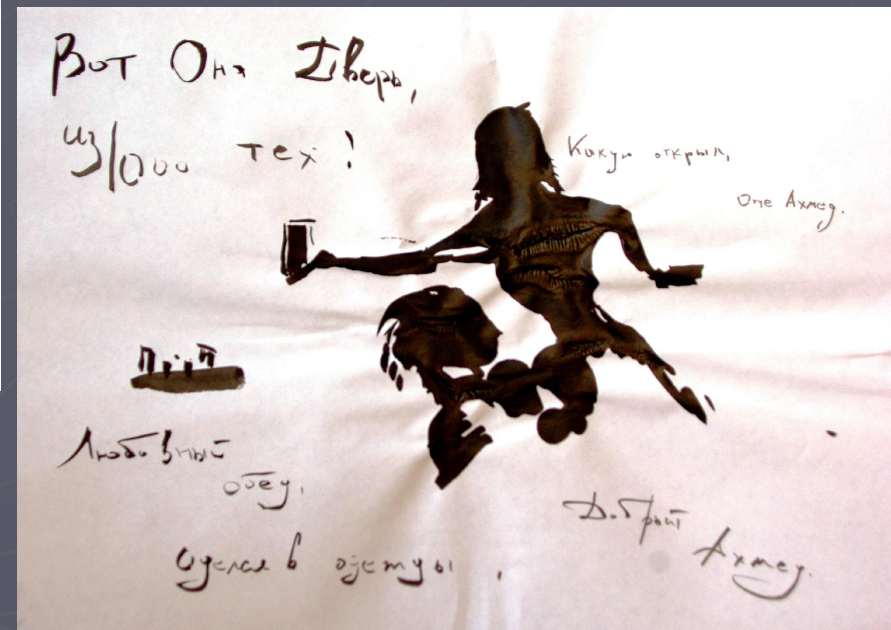 Вот Она Дверь,
из 1000 тех!
Какую открыл,
Отче Ахмед.
Любовный
обед,
Одел в одежды,
Добрый
Ахмед.